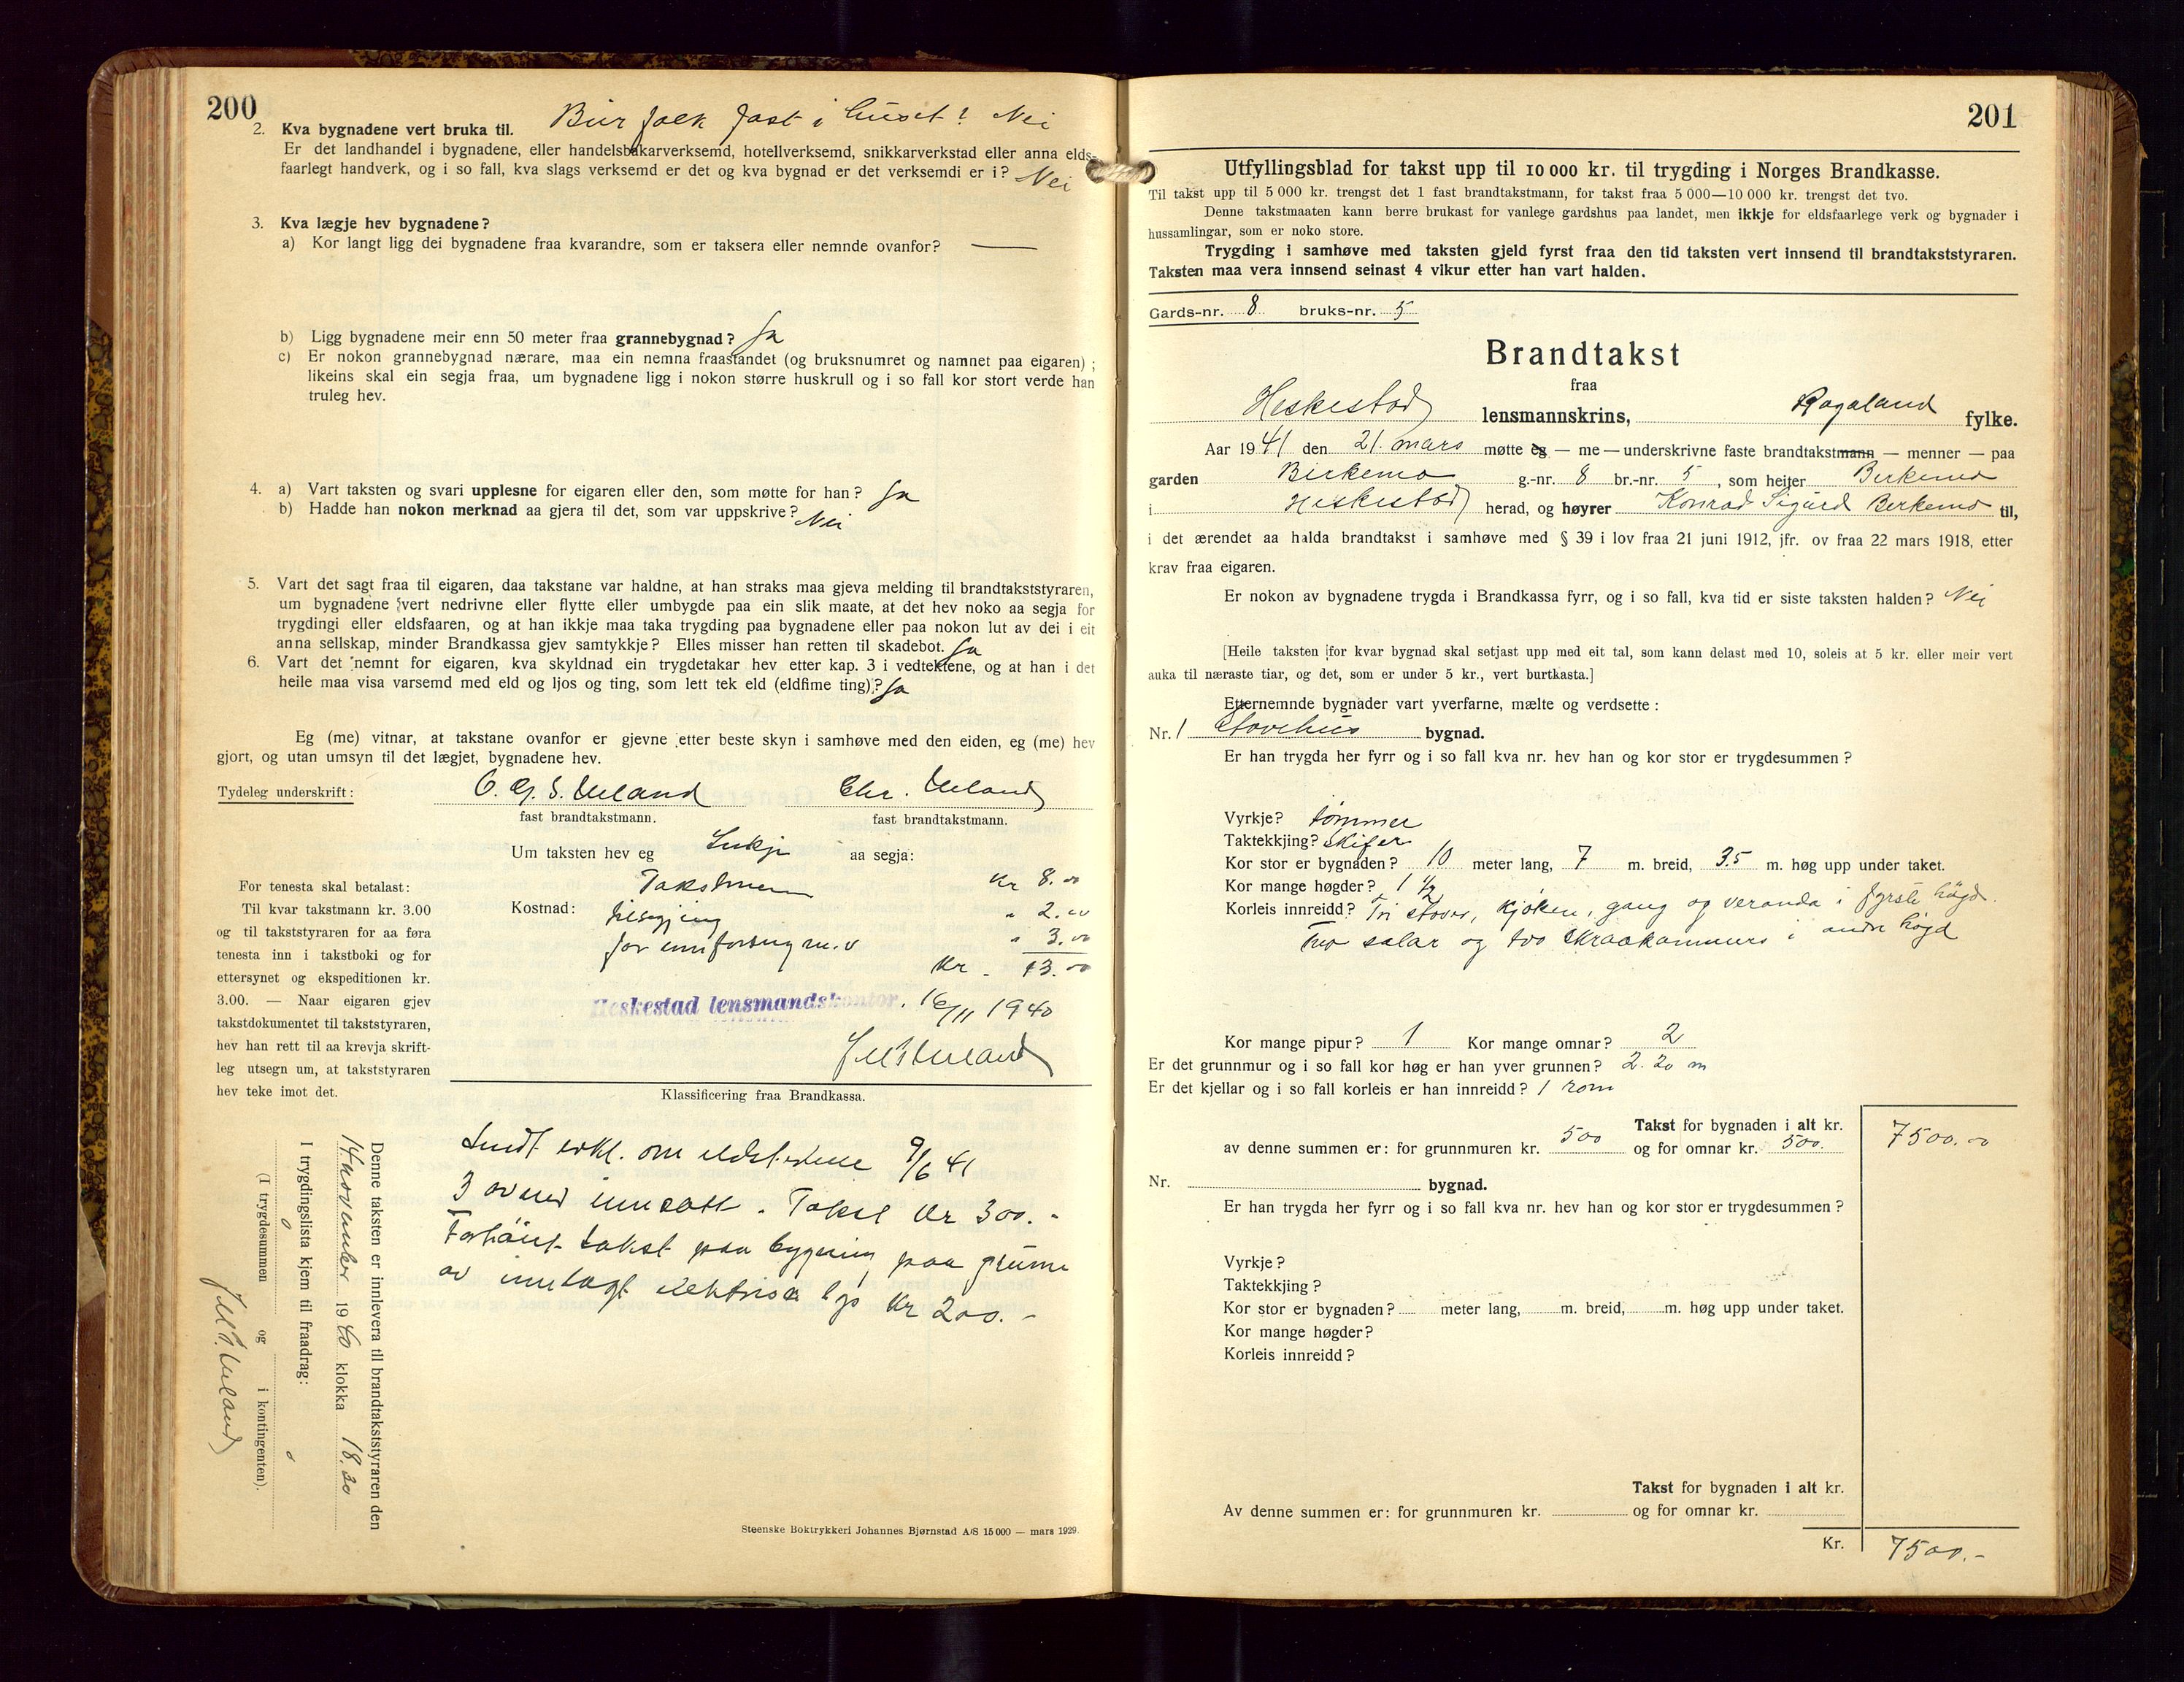 200
2. Kva bygnadene vert bruka til. Bur folk fast i huset? Nei
Er det landhandel i bygnadene, eller handelsbakarverksemd, hotellverksemd, snikkarverkstad eller anna elds-
faarlegt handverk, og i so fall, kva slags verksemd er det og kva bygnad er det verksemdi er i? Nei
3. Kva lægje hev bygnadene?
a) Kor langt ligg dei bygnadene fraa kvarandre, som er taksera eller nemnde ovanfor? —
b) Ligg bygnadene meir enn 50 meter fraa grannebygnad? Ja
c) Er nokon grannebygnad nærare, maa ein nemna fraastandet (og bruksnumret og namnet paa eigaren) ;
likeins skal ein segja fraa, um bygnadene ligg i nokon større huskrull og i so fall kor stort verde han
truleg hev.
4. a) Vart taksten og svari upplesne for eigaren eller den, som møtte for han? Ja
b) Hadde han nokon merknad aa gjera til det, som var uppskrive? Nei
5. Vart det sagt fraa til eigaren, daa takstane var haldne, at han straks maa gjeva melding til brandtakststyraren,
um bygnadene vert nedrivne eller flytte eller umbygde paa ein slik maate, at det hev noko aa segja for
trygdingi eller eldsfaaren, og at han ikkje maa taka trygding paa bygnadene eller paa nokon lut av dei i eit
anna sellskap, minder Brandkassa gjev samtykkje? Elles misser han retten til skadebot. Ja
6. Vart det nemnt for eigaren, kva skyldnad ein trygdetakar hev etter kap. 3 i vedtektene, og at han i det
heile maa visa varsemd med eld og ljos og ting, som lett tek eld (eldfime ting)? Ja
Eg (me) vitnar, at takstane ovanfor er gjevne etter beste skyn i samhøve med den eiden, eg (me) hev
gjort, og utan umsyn til det lægjet, bygnadene hev.
Tydeleg underskrift: O. G. S. Ueland Chr. Ueland
fast brandtakstmann. fast brandtakstmann.
Um taksten hev eg Inkje aa segja:
Kostnad: Takstmenn kr 8.00
" 2.00
for innføring m.v " 3.00
Kr. 13.00
Heskestad lensmandskontor. 16/11 1940
Klassificering fraa Brandkassa.
For tenesta skal betalast:
Til kvar takstmann kr. 3.00
og til takststyraren for aa føra
tenesta inn i takstboki og for
ettersynet og ekspeditionen kr.
3.00. — Naar eigaren gjev
takstdokumentet til takststyraren,
hev han rett til aa krevja skrift-
leg utsegn um, at takststyraren
hev teke imot det.
Denne taksten er innlevera til brandtakststyraren den
14 november 1940 klokka 18.30
I trygdingslista kjem til fraadrag:
(I trygdesummen o og i kontingenten). o
Sendt erkl. om eldstedene 9/6 41
3 ovner innsatt. Takst kr 300.-
Forhöiet takst paa bygning paa grunn
av innlagt elektrisk lys Kr 200.-
Steenske Boktrykkeri Johannes Bjørnstad A/S 15 000 — mars 1929.
201
Utfyllingsblad for takst upp til 10 000 kr. til trygding i Norges Brandkasse.
Til takst upp til 5 000 kr. trengst det 1 fast brandtakstmann, for takst fraa 5 000—10 000 kr. trengst det tvo.
Denne takstmaaten kann berre brukast for vanlege gardshus paa landet, men ikkje for eldsfaarlege verk og bygnader i
hussamlingar, som er noko store.
Trygding i samhøve med taksten gjeld fyrst fraa den tid taksten vert innsend til brandtakststyraren.
Taksten maa vera innsend seinast 4 vikur etter han vart halden.
Gards-nr. 8 bruks-nr. 5
Brandtakst
fraa
Heskestad lensmannskrins, Rogaland fylke.
Aar 1941 den 21. mars møtte eg — me — underskrivne faste brandtakstmann — menner — paa
garden Birkemo g.-nr. 8 br.-nr. 5, som heiter Birkemo
i Heskestad herad, og høyrer Konrad Sigurd Birkemo til,
i det ærendet aa halda brandtakst i samhøve med § 39 i lov fraa 21 juni 1912, jfr. ov fraa 22 mars 1918, etter
krav fraa eigaren.
Er nokon av bygnadene trygda i Brandkassa fyrr, og i so fall, kva tid er siste taksten halden? Nei
[Heile taksten for kvar bygnad skal setjast upp med eit tal, som kann delast med 10, soleis at 5 kr. eller meir vert
auka til næraste tiar, og det, som er under 5 kr., vert burtkasta.]
Etternemnde bygnader vart yverfarne, mælte og verdsette :
Nr. 1 Stovehus bygnad.
Er han trygda her fyrr og i so fall kva nr. hev han og kor stor er trygdesummen ?
Vyrkje? tømmer
Taktekkjing? Skifer
Kor stor er bygnaden? 10 meter lang, 7 m. breid, 3.5 m. høg upp under taket.
Kor mange høgder? 1 ½
Korleis innreidd? Tri stover, kjøken, gang og veranda i fyrste høgd.
Tvo salar og tvo skraakammers i andre høgd
Kor mange pipur? 1 Kor mange omnar? 2
Er det grunnmur og i so fall kor høg er han yver grunnen? 2.20 m
Er det kjellar og i so fall korleis er han innreidd? 1 rom
Takst for bygnaden i alt kr. 7500.00
av denne summen er: for grunnmuren kr. 500 og for omnar kr. 500.
Nr. bygnad.
Er han trygda her fyrr og i so fall kva nr. hev han og kor stor er trygdesummen ?
Vyrkje ?
Taktekkjing ?
Kor stor er bygnaden? meter lang, m. breid, m. høg upp under taket.
Kor mange høgder?
Korleis innreidd ?
Takst for bygnaden i alt kr.
Av denne summen er: for grunnmuren kr. og for omnar kr.
Kr. 7500.-